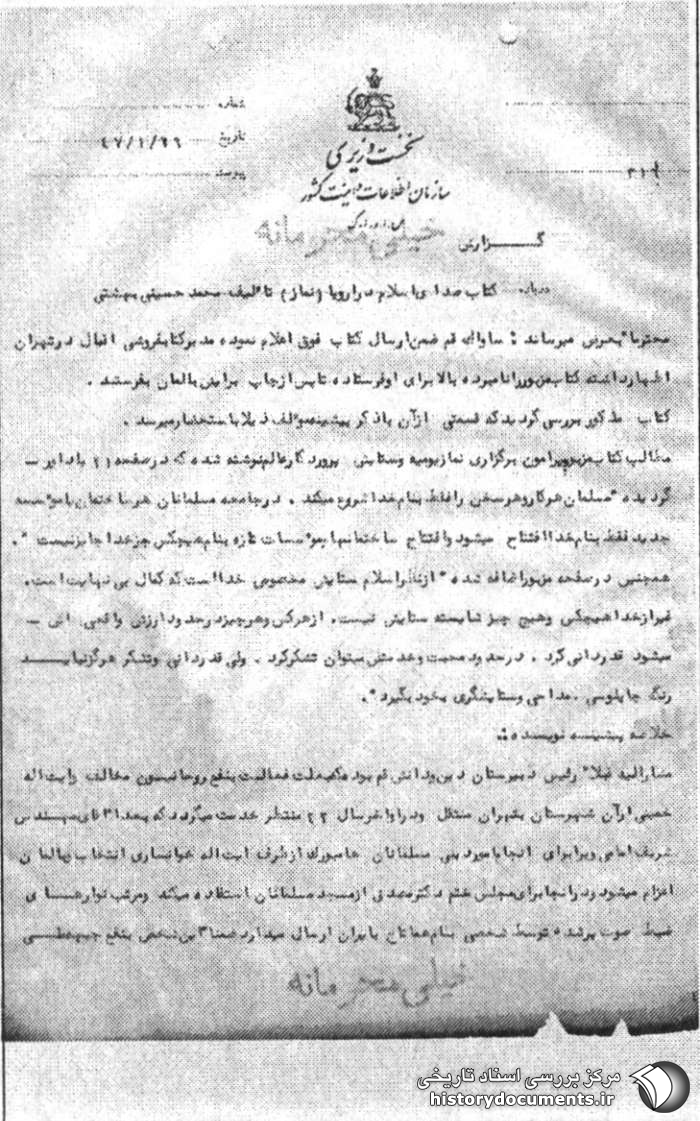 شماره
تاریخ ۴۷/۱/۲۶
پیوست
۳۱۲
نخست وزیری
سازمان اطلاعات و امنیت کشور
خیلی محرمانه
گزارش
درباره کتاب صدای اسلام در اروپا (نماز) تألیف محمد حسینی بهشتی
محترما" بعرض میرساند : ساواک قم ضمن ارسال کتاب فوق اعلام نموده مدیر کتابفروشی اقبال در تهران
اظهار داشته کتاب مزبور را نامبرده بالا برای او فرستاده تا پس از چاپ برایش بالمان بفرستد .
کتاب مذکور بررسی گردید که قسمتی از آن با ذکر پیشینه مولف ذیلا باستحضار میرسد .
مطالب کتاب مزبور پیرامون برگزاری نماز یومیه وستایش پروردگار عالم نوشته شده که در صفحه ۲۱ یادآور -
گردیده "مسلمان هر کار و هر سخن را فقط بنام خدا شروع میکند . در جامعه مسلمانان هر ساختمان یا موسسه
جدید فقط بنام خدا افتتاح میشود وافتتاح ساختمانها و موسسات تازه بنام هیچکس جز خدا جایز نیست " .
همچنین در صفحه مزبور اضافه شده " از نظر اسلام ستایش مخصوص خدا است که کمال بی نهایت است.
غیر از خدا هیچکس وهیچ چیز شایسته ستایش نیست. از هرکس وهرچیز در حدود ارزش واقعی اش -
میشود قدردانی کرد . در حدود محبت وخدمتش میتوان تشکر کرد . ولی قدردانی وتشکر هرگز نباید
رنگ چاپلوسی ، مداحی وستایشگری بخود بگیرد " .
خلاصه پیشینه نویسنده :
مشارالیه قبلا" رئیس دبیرستان دین ودانش قم بوده که بعلت فعالیت بنفع روحانیون مخالف و آیت اله
خمینی از آن شهرستان بتهران منتقل ودر اواخر سال ۴۲ منتظر خدمت میگردد که بعدا آقای مهندس
شریف امامی ویرا برای انجام امور دینی مسلمانان هامبورگ از طرف آیت اله خوانساری انتخاب بآلمان
اعزام میشود ودر آنجا برای مجلس ختم دکتر مصدق از مسجد مسلمانان استفاده میکند ومرتب نوارهای
ضبط صوت پر شده توسط شخصی بنام بایران ارسال میدارد ضمنا این شخص بنفع جبهه ملی
خیلی محرمانه
مرکز بررسی اسناد تاریخی
historydocuments.ir